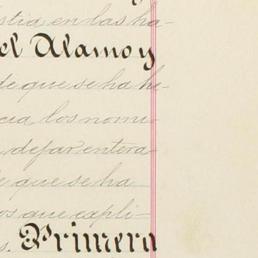 stia en las ha-
el Alamo y
de que se ha he-
cia los nomi-
dejar entera-
e que se ha
os que expli-
s. Primera